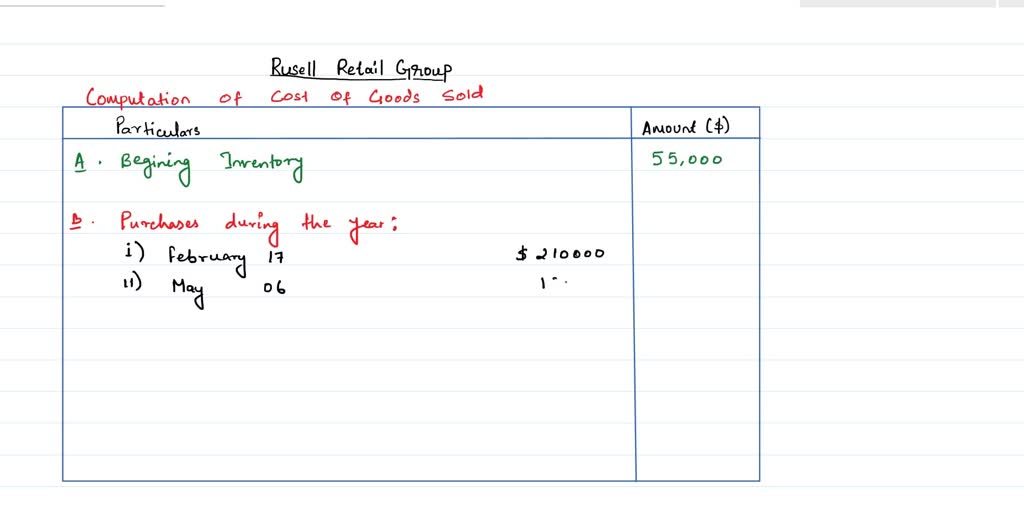 Rusell Retail Group
Computation of Cost of Goods Sold
Particulars Amount ($)
A. Begining Inventory 55,000
B. Purchases during the year:
i) February 17 $ 210000
ii) May 06